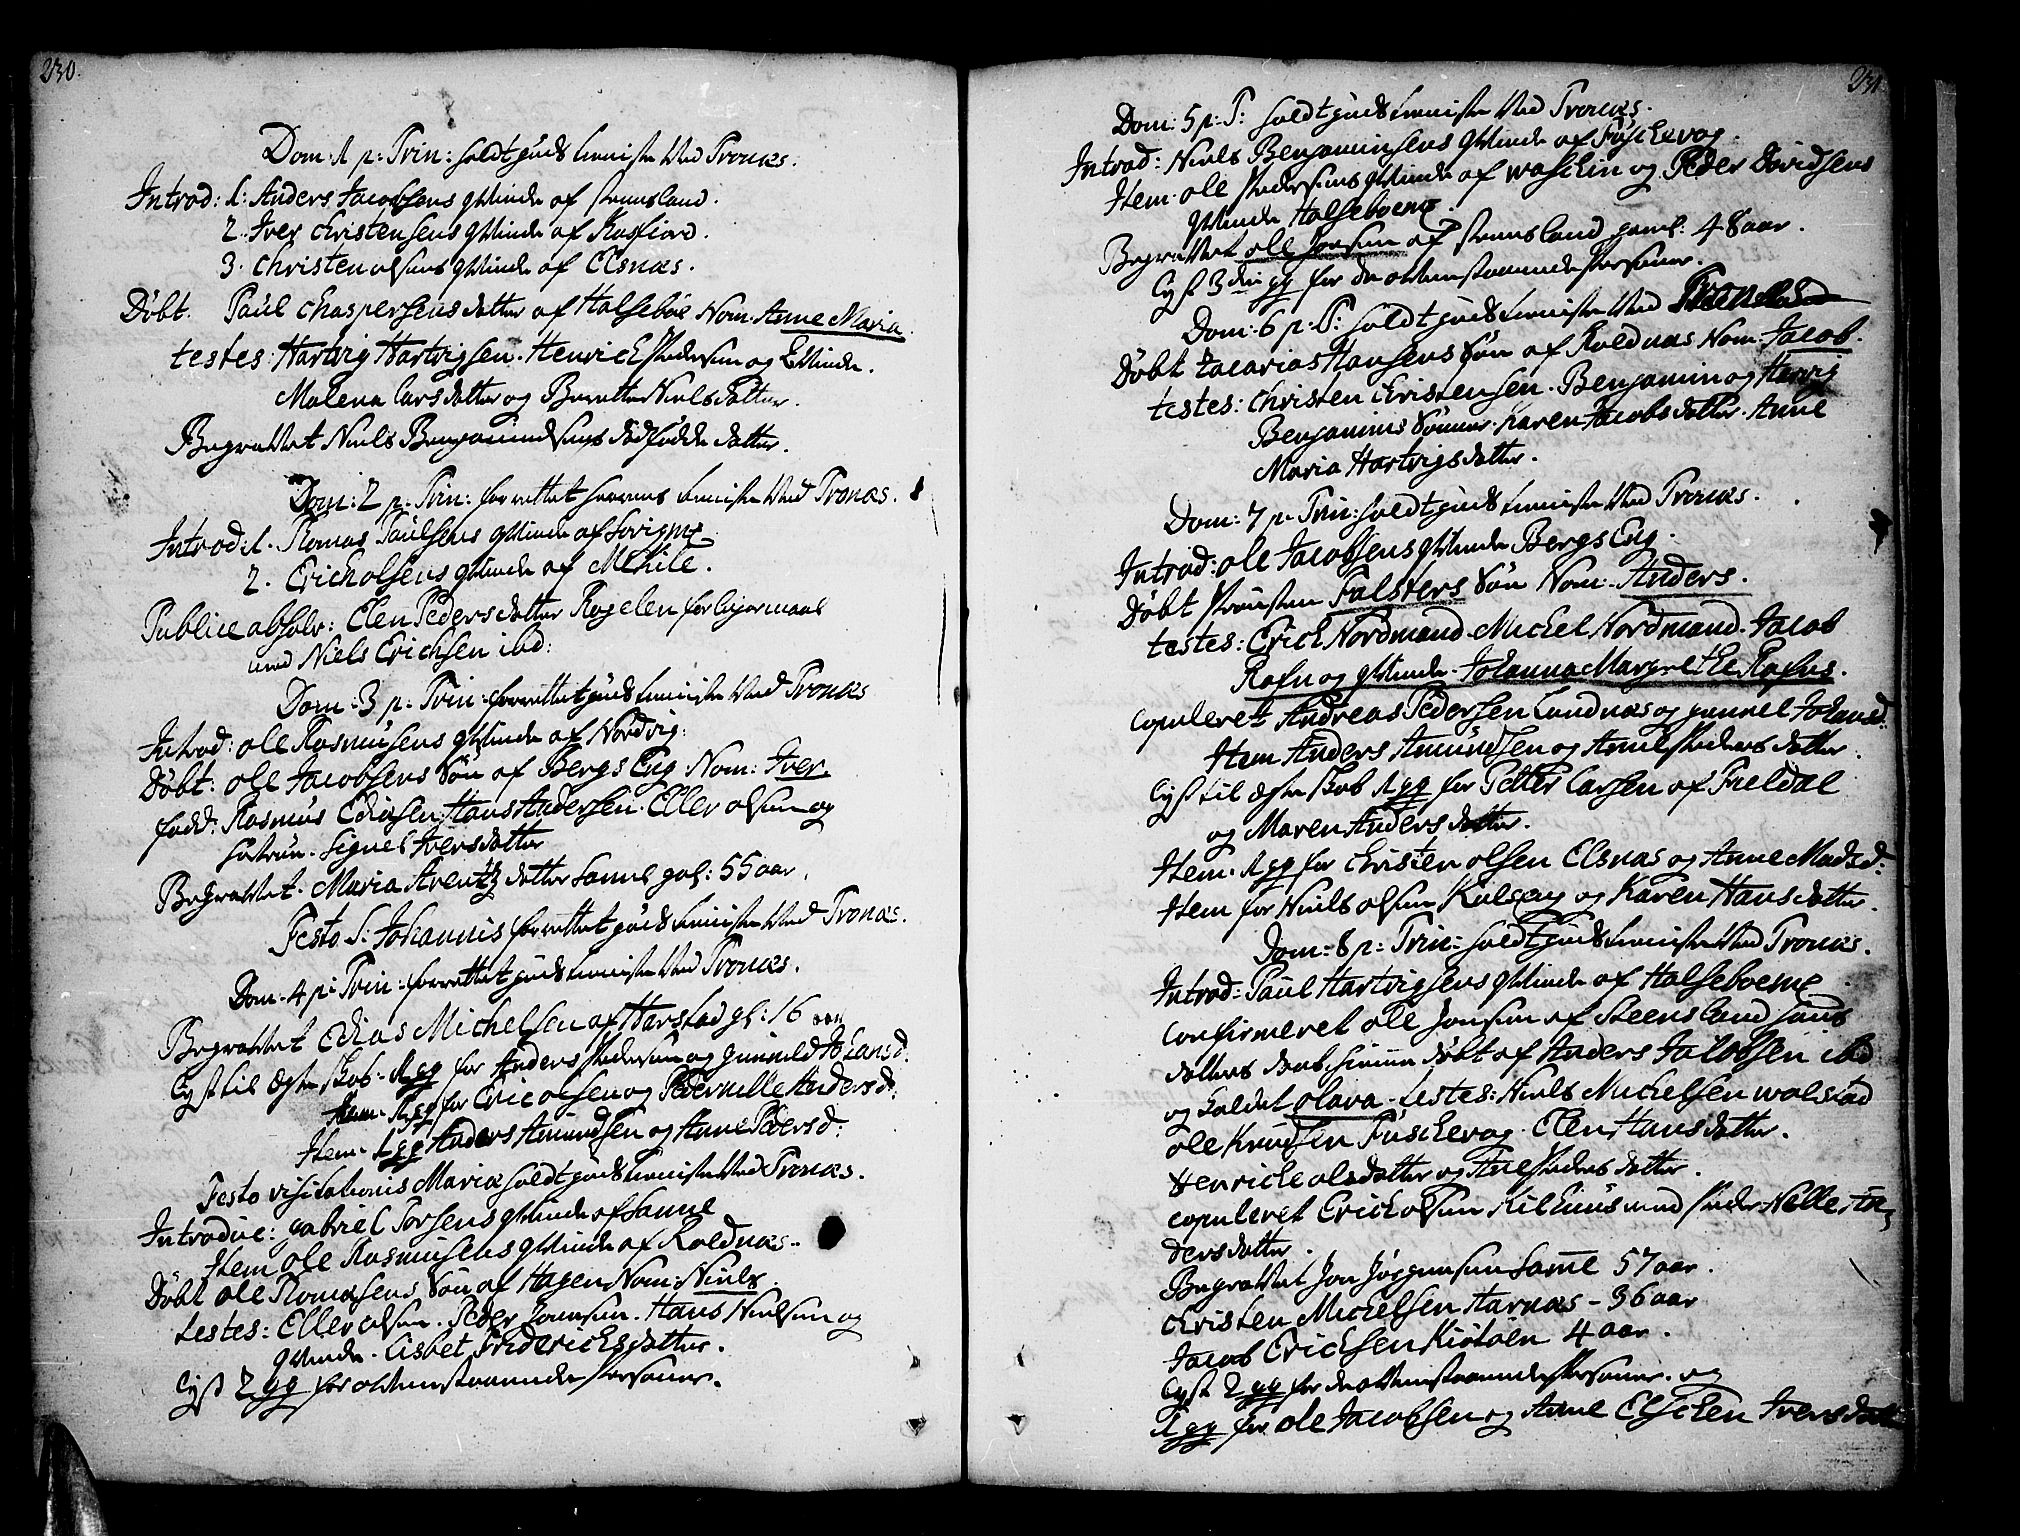 230.
Dom: 1 p: Trin: holdt guds tieniste ved Tronæs.
Introd: 1: Anders Jacobsens qvinde af Stensland.
2. Iver Christensens qvinde af Kasfiord.
3. Christen olsens qvinde af Elsnæs.
Döbt. Paul Chaspersens datter af Halseböe Nom. Anne Maria.
testes: Hartvig Hartvigsen. Henrich Pedersen og Qvinde.
Malena Larsdatter og Berette Nielsdatter.
Begravet Niels Benjamindsens dödfödde datter.
Dom: 2 p: Trin: forrettet herrens tieniste ved Tronæs.
Introd: 1. Tomas Paulsens qvinde af
2. Erich olsens qvinde af Melchile.
Publice absolv: Elen Pedersdatter Rogelen for lejermaal
med Niels Erichsen ibd:
Dom: 3 p: Trin: forrettet guds tieniste ved Tronæs
Introd: ole Rasmusens qvinde af Nordvig:
Döbt: ole Jacobsens Sön af Bergs Eng. Nom: Iver.
fadd: Rasmus Ediasen, Hans Andersen. Eller olsen og
hustrue. Signel Iversdatter
Begravet. Maria Arentz datter Samme gal: 55 aar.
Festo S: Johannis forrettet guds tieniste ved Tronæs.
Dom. 4 p: Trin: forrettet guds tieniste ved Tronæs.
Begravet Edias Michelsen af Harstad gl: 16 aar
Lyst til Egteskab. 1 gg for Anders Pedersen og gunnild Johansd:
Item. 1 gg for Eric olsen og Pedernille Andersd:
Item. 1 gg Anders Amundsen og Anne Pedersd:
Festo visitationis Mariæ holdt guds tieniste ved Tronæs.
Introduc: gabriel Torsens qvinde af Samme
Item ole Rasmusens qvinde af Roldnæs.
Döbt ole Tomasens Sön af Hagen Nom: Niels.
testes: Eller olsen. Peder Jonnsen. Hans Nielsen og
qvinde. Lisbet Friderichsdatter.
Lyst 2 gg for ovenstaaende Personer.
231
Dom: 5 p: T: holdt guds tieniste ved Tronæs.
Introd: Niels Benjaminsens qvinde af Fuschevog.
Item. ole Pedersens qvinde af waschin og Peder Davidsens
qvinde Halseboene.
Begravet ole Jonsen af Stensland gaml: 48 aar.
Lyst 3die gg for de ovenstaaende Personer.
Dom: 6 p: T: holdt guds tieniste ved
Döbt Zacarias Hansens Sön af Roldnæs Nom. Jacob.
testes: Christen Christensen. Benjamin og Hervig
Benjamins Sönner. Karen Jacobsdatter. Anne
Maria Hartvigsdatter.
Dom: 7 p: Trin: holdt guds tieniste ved Tronæs.
Introd: ole Jacobsens qvinde Bergs Eng.
Döbt Provsten Falsters Sön Nom: Anders.
testes: Erich Nordmand. Michel Nordmand. Jacob
Rafn og qvinde. Johanna Margrethe Rafns.
Copuleret Andreas Pedersen Landnæs og gunnel Johansd:
Item Anders Amundsen og Anne Pedersdatter.
Lyst til Egteskab 1 gg for Petter Larsen af Fieldal
og Maren Andersdatter.
Item. 1 gg for Christen olsen Elsnæs og Anne Madsd:
Item for Niels olsen Kulseng og Karen Hansdatter.
Dom: 8 p: Trin: holdt guds tieniste ved Tronæs.
Introd: Paul Hartvigsens qvinde af Halseboene
Confirmeret ole Jonsen af Steensland hans
datters daab hiemme döbt af Anders Jacobsen ibd
og kaldet olava. testes: Niels Michelsen wolstad
ole Knudsen Fuschevog. Elen Hansdatter.
Henriche olsdatter og Ane Pedersdatter.
Copuleret Erich olsen Kilhuus med Pedernelle An-
dersdatter.
Begravet Jon Jörgensen Samme 57 aar.
Christen Michelsen Harnæs - 36 aar
Jacob Erichsen Kiötöen 4 aar.
Lyst 2 gg for de ovenstaaende Personer. og
1 gg for ole Jacobsen og Anne Elschen Iversdatt